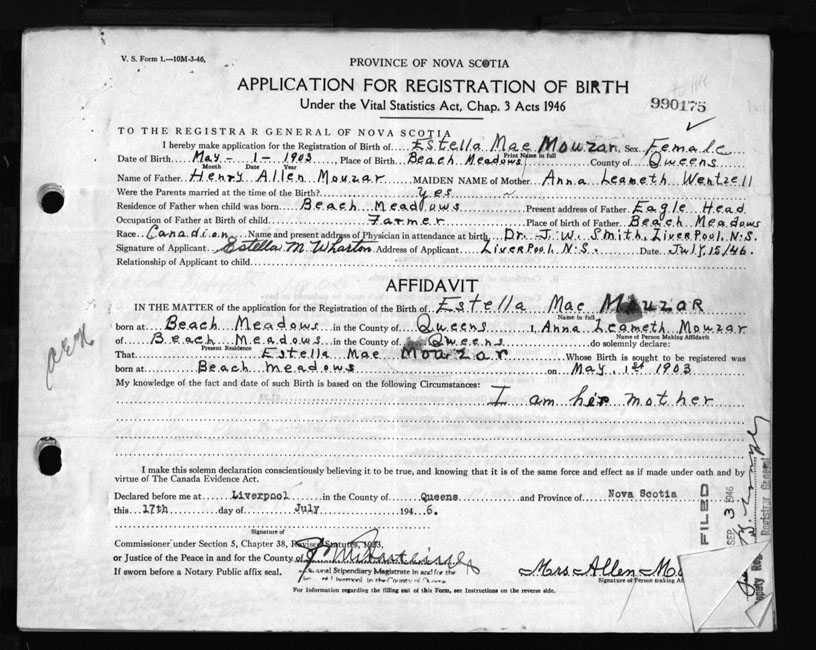 V. S. Form 1.—10M-3-46.
PROVINCE OF NOVA SCOTIA
APPLICATION FOR REGISTRATION OF BIRTH
Under the Vital Statistics Act, Chap. 3 Acts 1946
990175
TO THE REGISTRAR GENERAL OF NOVA SCOTIA
I hereby make application for the Registration of Birth of Estella Mae Mouzar Sex Female
Print Name in full
Date of Birth May - 1 - 1903 Place of Birth Beach Meadows County of Queens
Month Date Year
Name of Father Henry Allen Mouzar MAIDEN NAME of Mother Anna Leameth Wentzell
Were the Parents married at the time of the Birth? yes
Residence of Father when child was born Beach Meadows Present address of Father Eagle Head
Occupation of Father at Birth of child Farmer Place of birth of Father Beach Meadows
Race Canadian Name and present address of Physician in attendance at birth Dr. J. W. Smith, Liverpool, N.S.
Signature of Applicant Estella M. Wharton Address of Applicant Liverpool, N.S. Date July, 15/46.
Relationship of Applicant to child
AFFIDAVIT
IN THE MATTER of the application for the Registration of the Birth of Estella Mae Mouzar
Name in full
born at Beach Meadows in the County of Queens I, Anna Leameth Mouzar
Name of Person Making Affidavit
of Beach Meadows in the County of Queens do solemnly declare:
Present Residence
That Estella Mae Mouzar Whose Birth is sought to be registered was
born at Beach meadows on May 1st 1903
My knowledge of the fact and date of such Birth is based on the following Circumstances:
I am her mother
I make this solemn declaration conscientiously believing it to be true, and knowing that it is of the same force and effect as if made under oath and by
virtue of The Canada Evidence Act.
Declared before me at Liverpool in the County of Queens and Province of Nova Scotia
this 17th day of July 1946.
Signature of
Commissioner under Section 5, Chapter 38, Revised Statutes, 1923,
or Justice of the Peace in and for the County of
If sworn before a Notary Public affix seal.
Stipendiary Magistrate in and for the
Liverpool, in the County of
Mrs Allen
Signature of Person making
For Information regarding the filling out of this Form, see Instructions on the reverse side.
FILED
SEP 3 1946
Deputy Registrar General